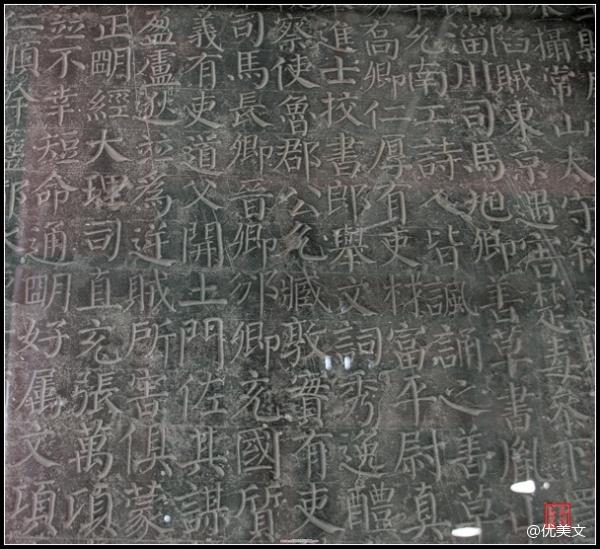 攝常山太守殺
陷賊東京遇害楚毒參下
淄川司馬旭卿善草書胤
允南工詩人皆諷誦之善草
喬卿仁厚有吏材富平尉真
進士校書郎舉文詞秀逸醴
察使魯郡公允臧敦實有吏
司馬長卿晉卿邠卿充國質
義有吏道父開土門佐其謀
盈盧逖並為逆賊所害俱蒙
正明經大理司直充張萬頃
並不幸短命通明好屬文項
仁順
@优美文